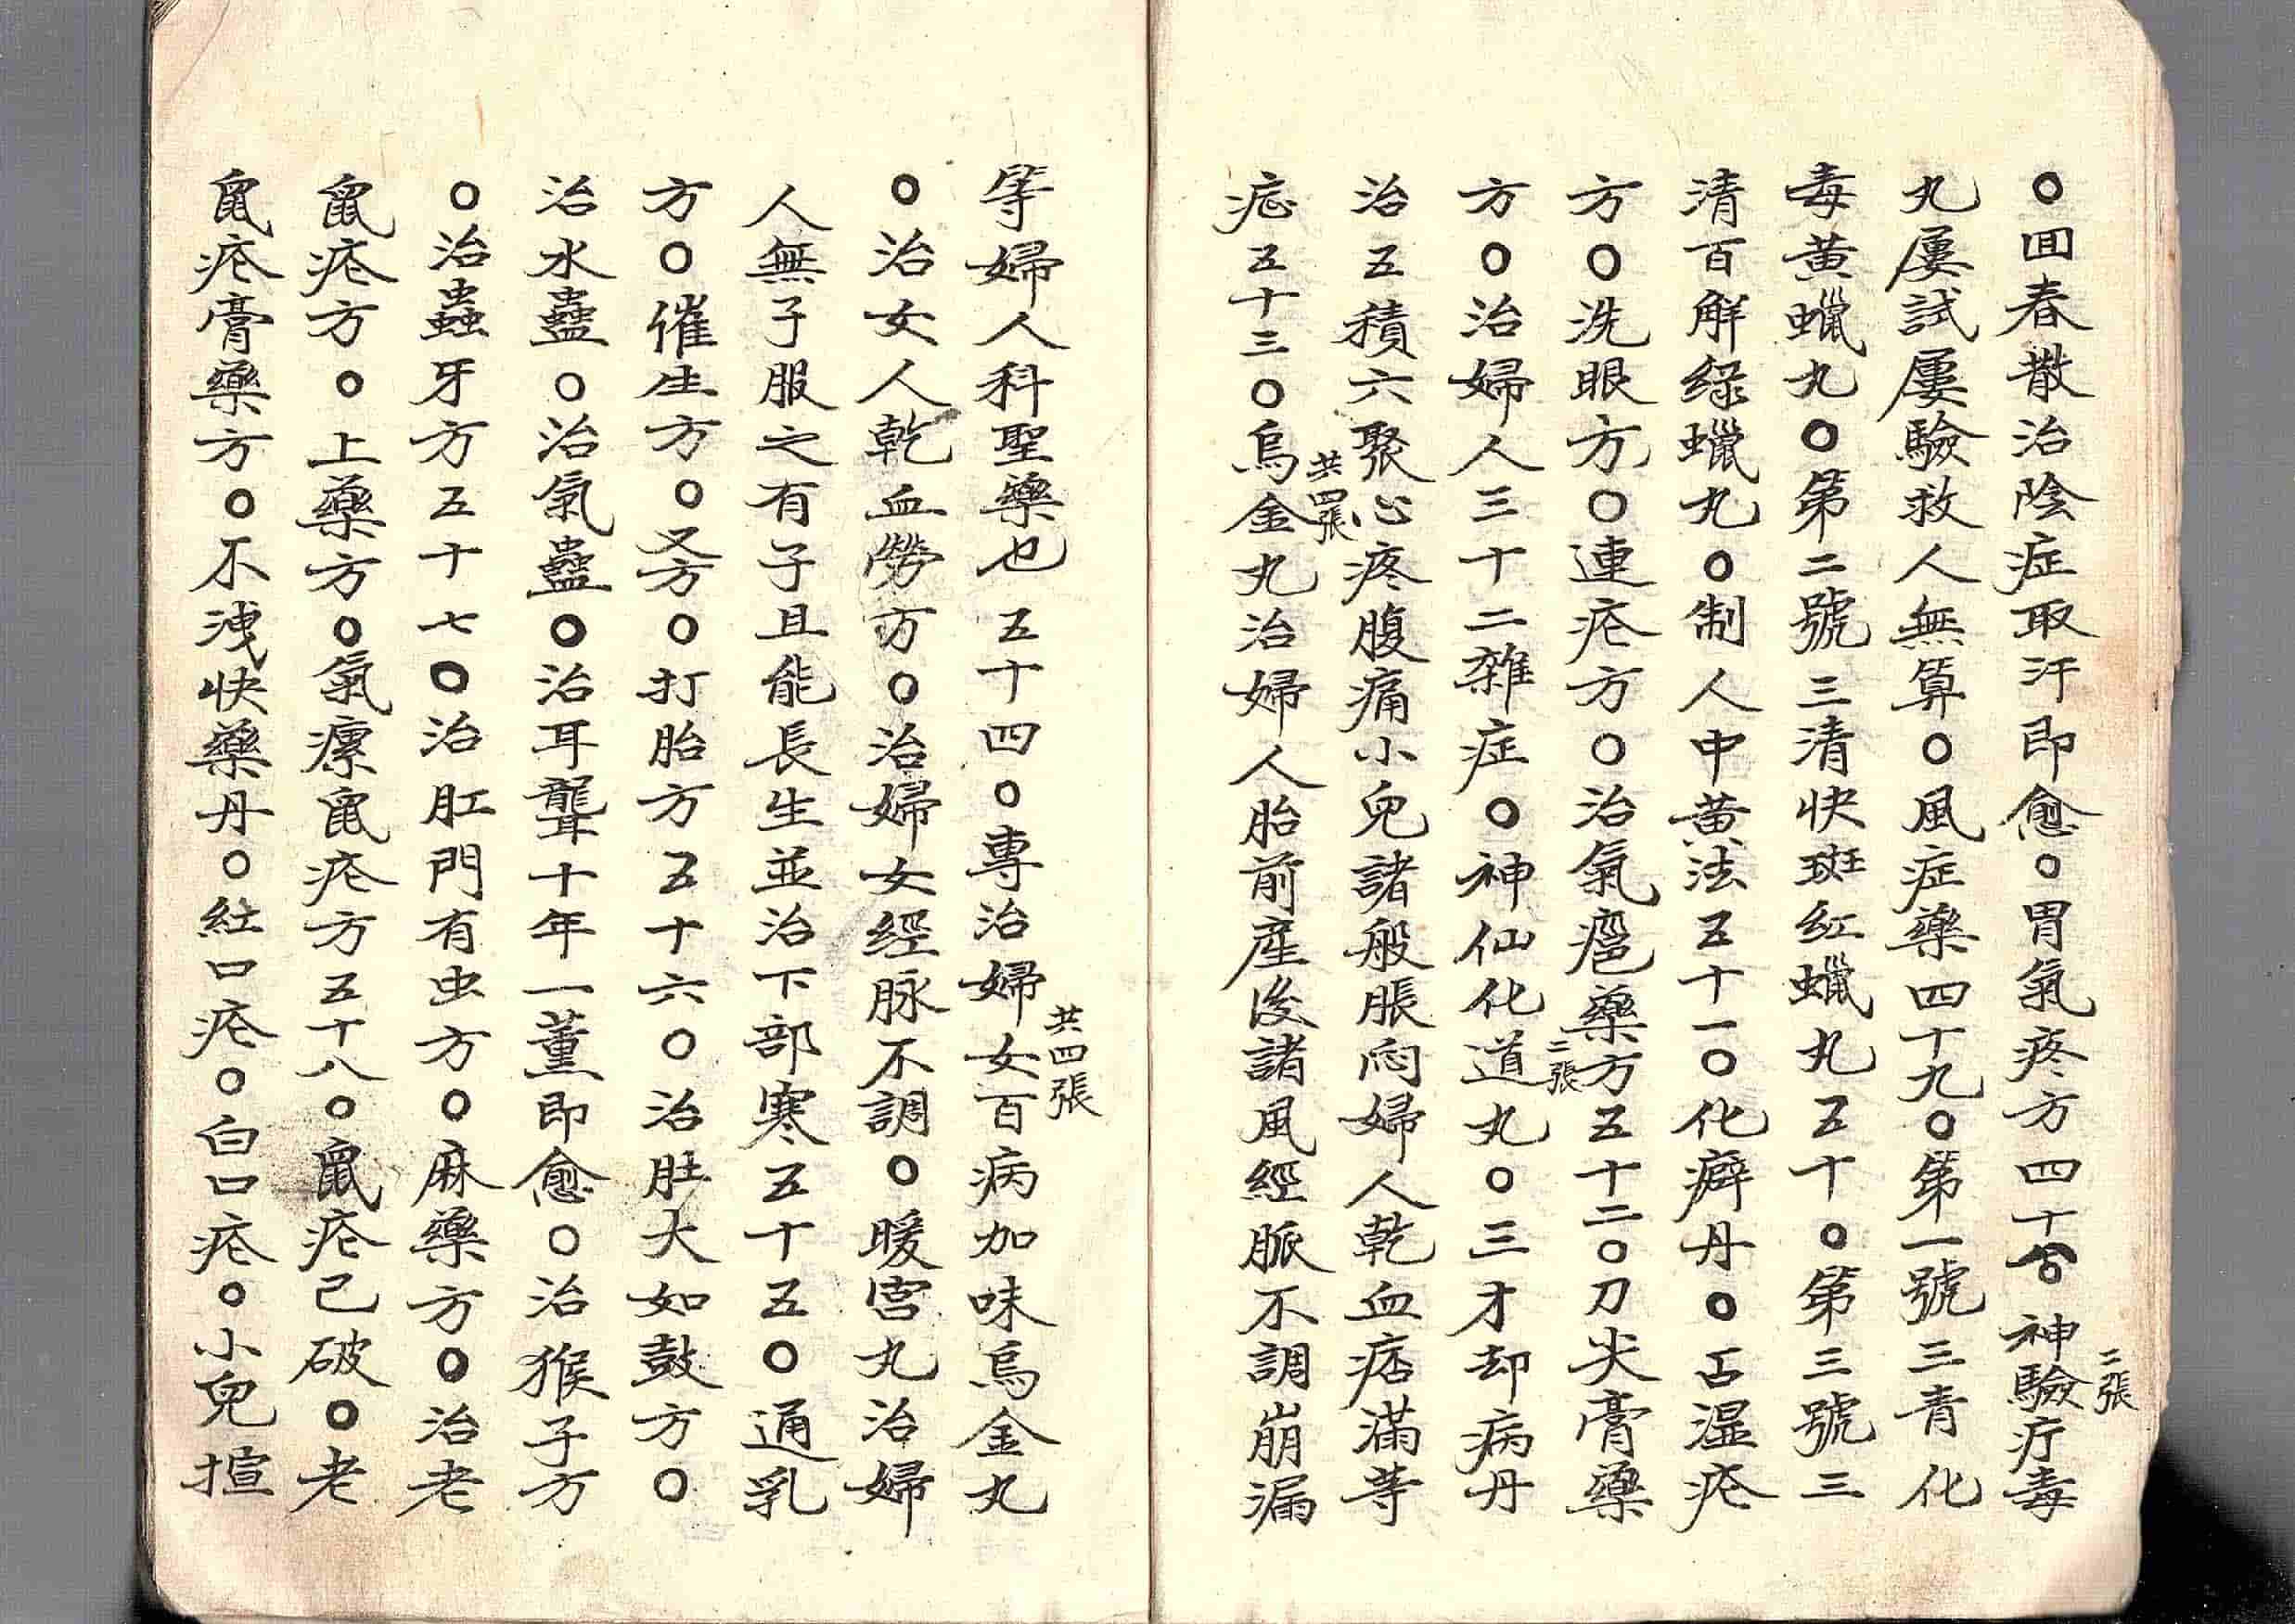 ○回春散治陰症取汗即愈○胃氣疼方四十八○神驗疔毒
二張
丸屢試屢驗救人無算○風症藥四十九○第一號三青化
毒黃蠟丸○第二號三清快斑紅蠟丸五十○第三號三
清百解綠蠟丸○制人中黃法五十一○化癖丹○占湿疮
方○洗眼方○連疮方○治氣瘪藥方五十二○刀尖膏藥
二張
方○治婦人三十二雜症○神仙化道丸○三才却病丹
治五積六聚心疼腹痛小兒諸般脹闷婦人乾血痞滿等
共四張
症五十三○烏金丸治婦人胎前産後諸風經脈不調崩漏
等婦人科聖藥也五十四○專治婦女百病加味烏金丸
共四張
○治女人乾血勞方○治婦女經脉不調○暖宫丸治婦
人無子服之有子且能長生並治下部寒五十五○通乳
方○催生方○又方○打胎方五十六○治肚大如鼓方○
治水蠱○治氣蠱○治耳聾十年一薫即愈○治猴子方
○治蟲牙方五十七○治肛門有虫方○麻藥方○治老
鼠疮方○上藥方○氣瘰鼠疮方五十八○鼠疮己破○老
鼠疮膏藥方○不洩快藥丹○紅口疮○白口疮○小兒揎